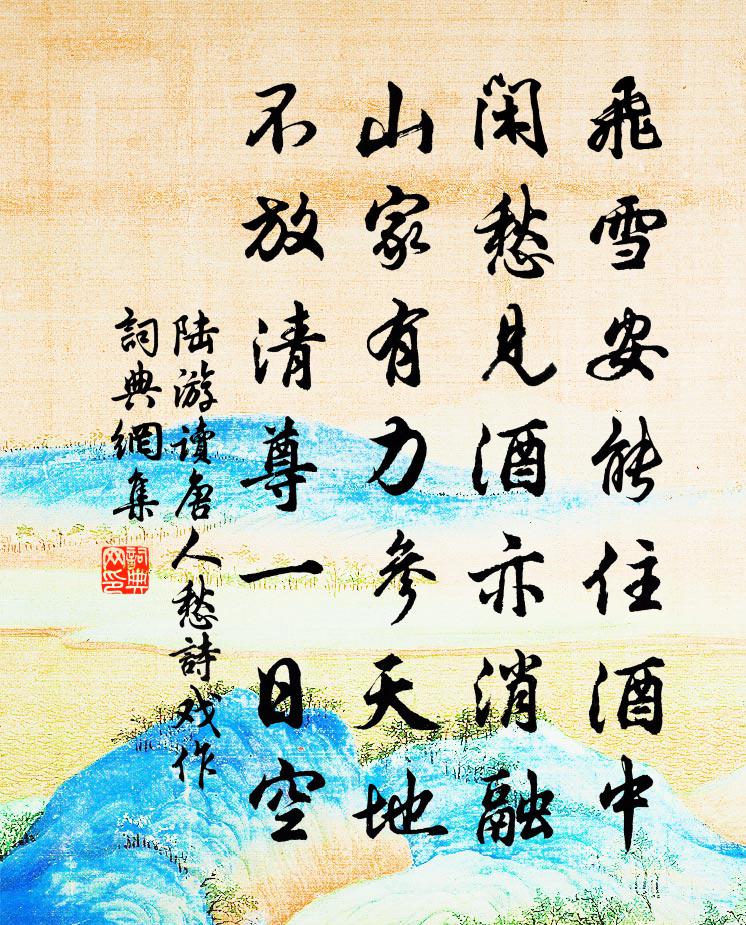 飛雪安能住酒中
閑愁見酒亦消融
山家有力參天地
不放清尊一日空
陆游讀唐人愁詩戏作
詞典網集
詞典
网印